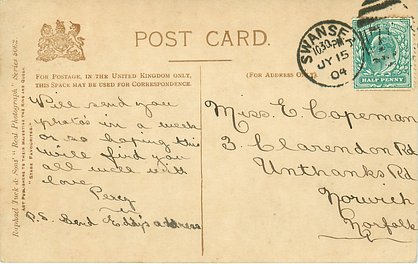 POST CARD.
FOR POSTAGE, IN THE UNITED KINGDOM ONLY,
THIS SPACE MAY BE USED FOR CORRESPONDENCE.
(FOR ADDRESS ONLY.)
SWANSEA
10.30 PM
JY 15
04
HALF PENNY
Raphael Tuck & Sons' "Real Photograph" Series
ART PUBLISHERS TO THEIR MAJESTIES THE KING AND QUEEN.
"STAGE FAVOURITES."
Will send you
photo's in a week
or so hoping this
will find you
all well with
love
Percy
P.S. Send Eddy's address
Miss E. Capeman
3, Clarendon Rd
Unthanks Rd
Norwich
Norfolk